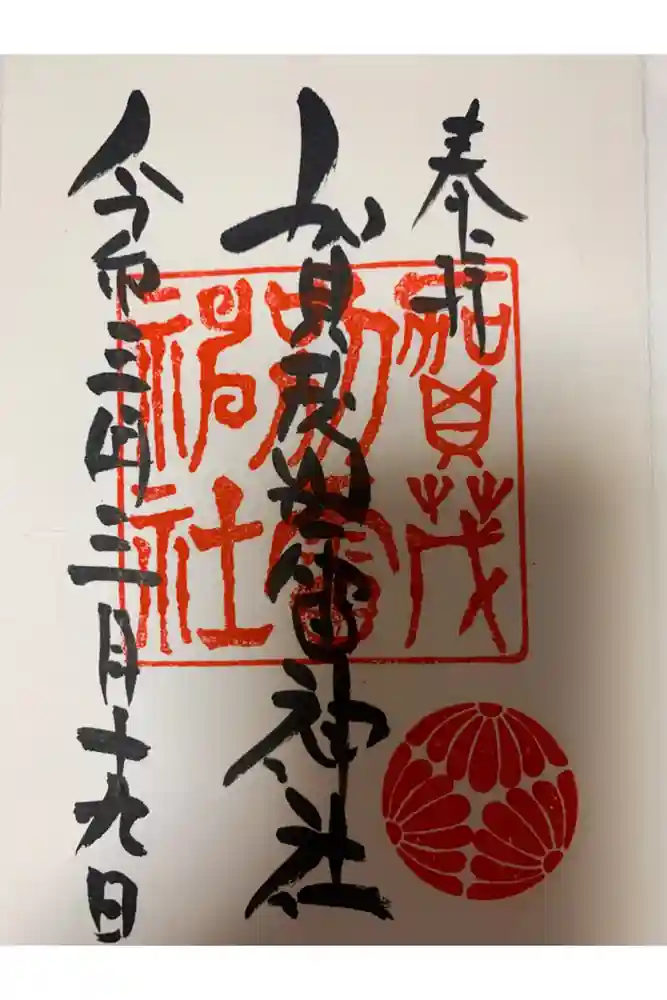 奉拝
賀茂別雷神社
令和三年三月十九日
賀茂
別雷
神社